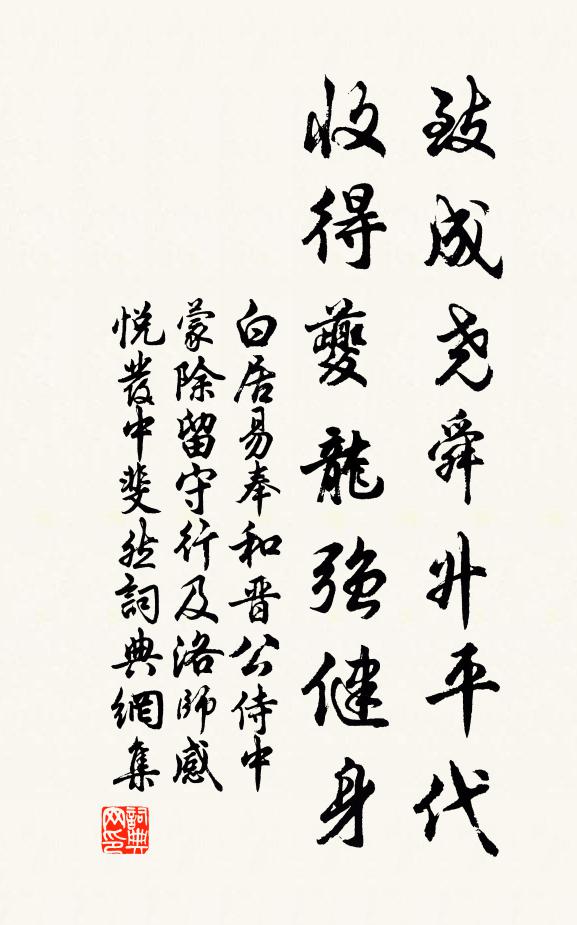 致成尧舜升平代
收得夔龍强健身
白居易奉和晋公侍中
蒙除留守行及洛師感
悦發中斐然詞典網集
詞典网印